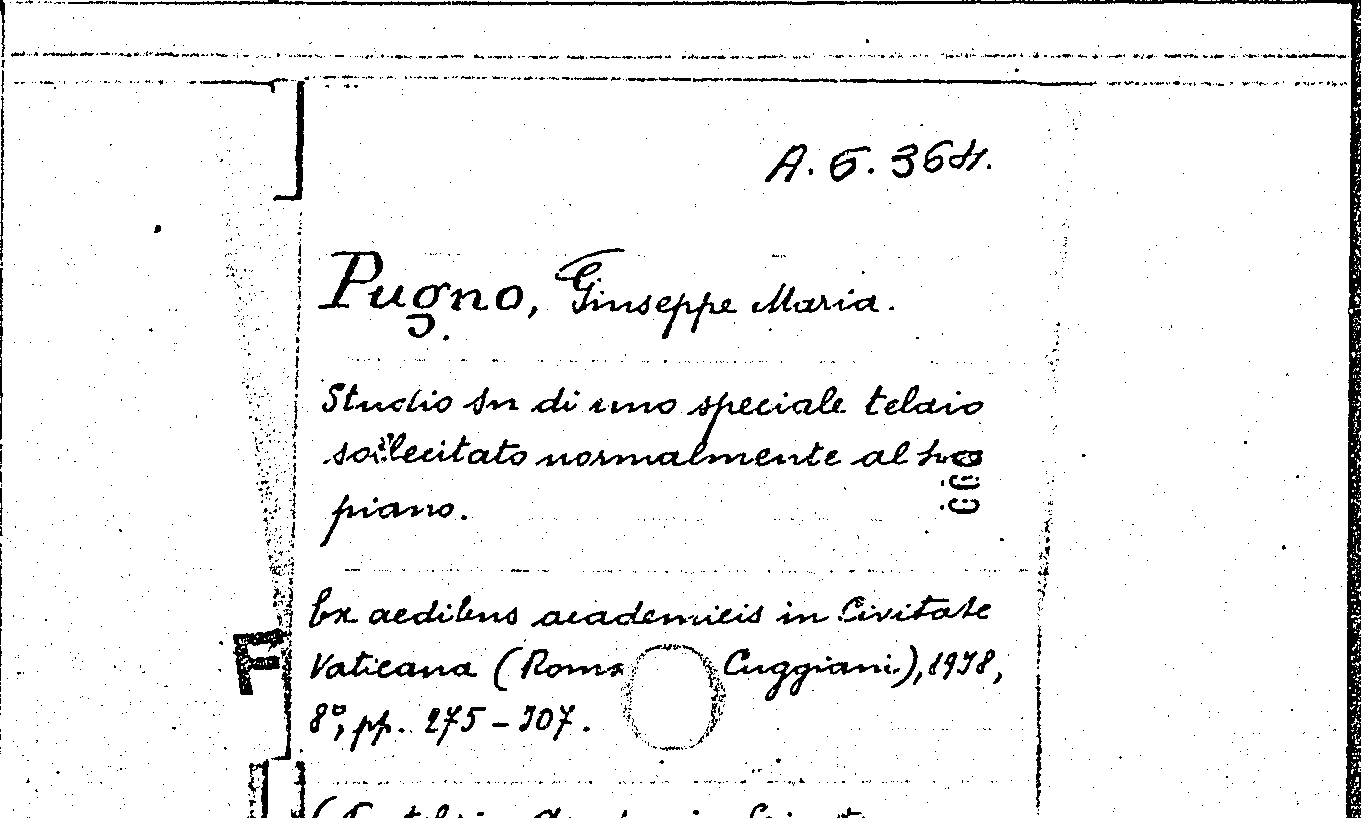 A. G. 364.
Pugno, Giuseppe Maria.
Studio su di uno speciale telaio
sollecitato normalmente al suo
piano.
Ex aedibus academicis in Civitate
Vaticana (Roma Cuggiani.), 1938,
8º, pp. 275-307.